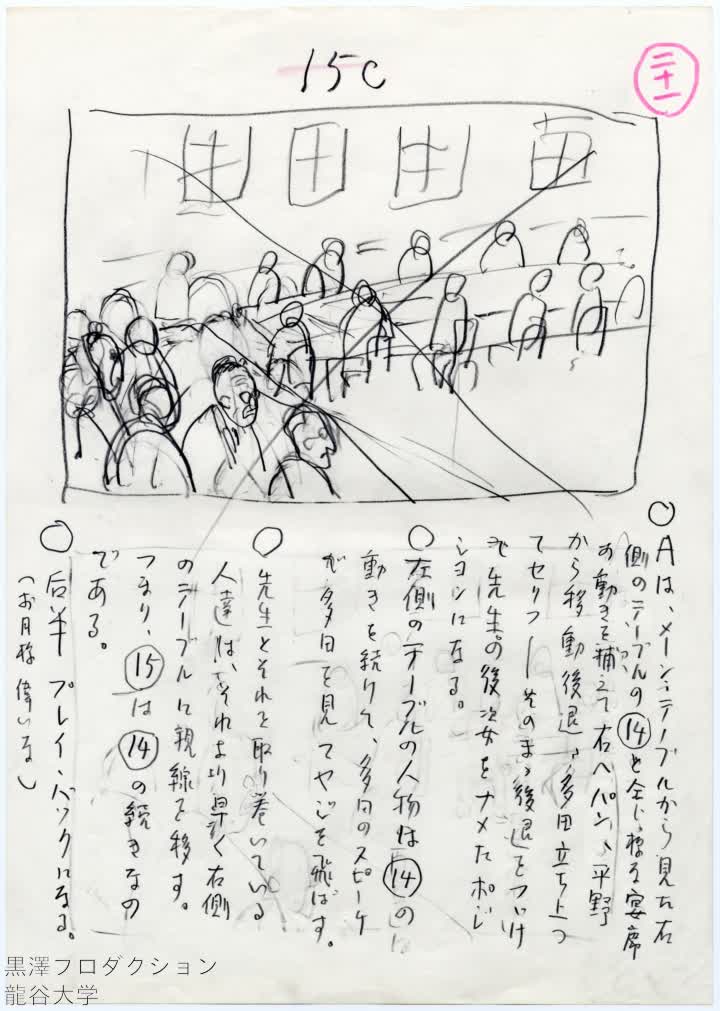 15C
二十一
○Aは、メーン・テーブルから見た右
側のテーブルの⑭と全じ様な宴席
の動きを捕えて右へパン、平野
から移動後退、多田立ち上つ
てセリフ―そのまゝ後退をつゞけ
て先生の後姿をナメたポジ
ションになる。
○左側のテーブルの人物は⑭の
動きを続けて、多田のスピーチ
が多田を見てヤジを飛ばす。
○先生とそれを取り巻いている
人達は、それより早く右側
のテーブルに視線を移す。
つまり、⑮は⑭の続きなの
である。
○后半プレイ・バックになる。
(お月様偉いな)
黒澤プロダクション
龍谷大学